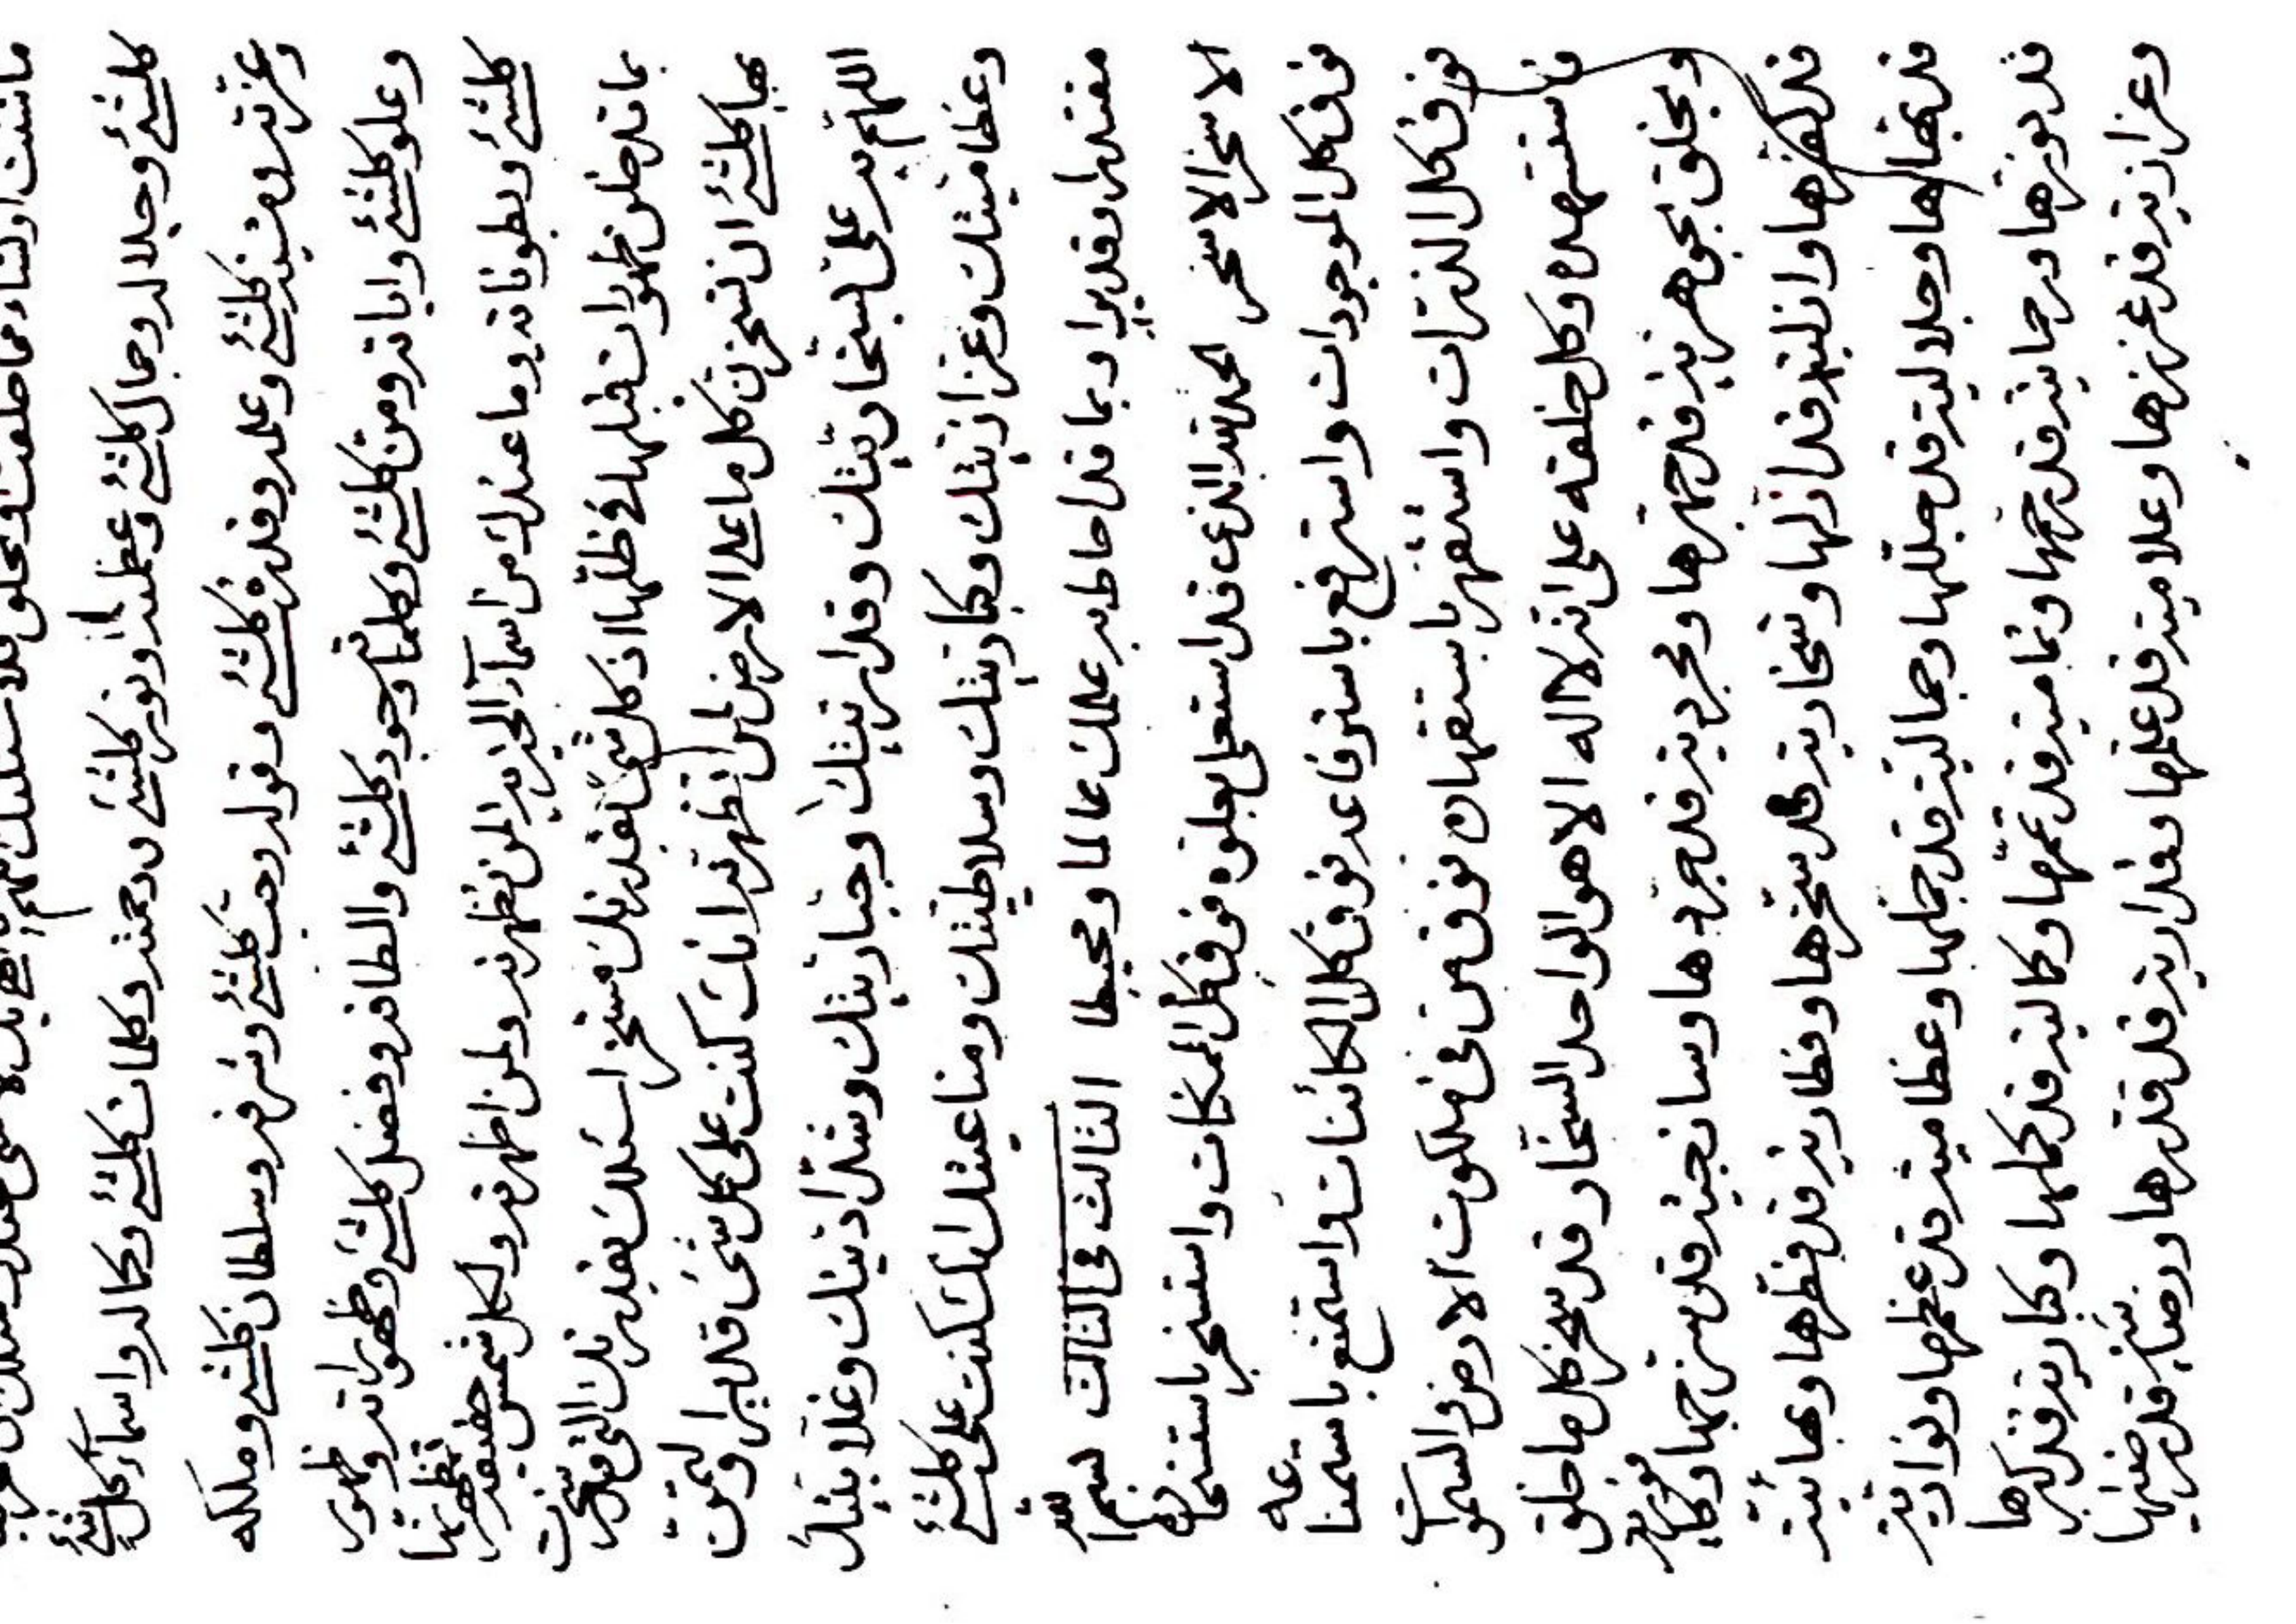 كلشئ وجلاله وجمال كلشئ وعظمته ونور كلشئ ورحمته وكلمات كلشئ وكماله واسماء كل شئ
وعزته ومشية كلشئ وعلمه وقدرة كلشئ وقوله وحب كلشئ وشرفه وسلطان كلشئ وملكه
وعلو كلشئ واياته ومن كلشئ وكلماته وجود كلشئ والطافه وفضل كلشئ وظهوراته وظهور
كلشئ وبطوناته وما عندك من اسماء الخيرية لمن تظهرنه ولمن اظهرته ولكل شمس حقيقة تظهرنها
بما قد خلق ظهورات قبلها في ظلها اذ كل شئ بقدرتك مستخر اسئلك بقدرتك التي قد سخرت
بها كلشئ ان تسخرن كل ما على الارض لمن تظهرنه انك كنت على كل شئ قديرا
اللهم به على سخاريتك وقداريتك وجباريتك وشداديتك وغلابيتك
وعظاميتك وعزازيتك وكباريتك وسلاطيتك ومناعيتك انك كنت على كلشئ
مقتدرا وقديرا وبما قد احاط به علمك عالما ومحيطا الثالث في الثالث بسم الله
الاسخر الاسخر الحمد لله الذي قد استعلى بعلوه فوق كل الممكنات واستسخر باستسخاره
فوق كل الموجودات واسترفع باسترفاعه فوق كل الكائنات واستمنع باستمناعه
فوق كل الذرات واستقهر باستقهاره فوق من في ملكوت الارض والسموات
فاستشهده وكل خلقه على انه لا اله الا هو الواحد السخار قد سخر كل ما خلق
ويخلق بجوهرية قد جوهرها ومجردية قد جردها وساذجية قد سذجها وكافورية
قد كفرها وازلية قد ازلها وسخارية قد سخرها وفطارية قد فطرها وبهائية
قد بهاها وجلالية قد جللها وجمالية قد جملها وعظامية قد عظمها ونوارية
قد نورها ورحمانية قد رحمها وتمامية قد تممها وكمالية قد كملها وكبارية قد كبرها
وعزازية قد عززها وعلامية قد علمها وقدارية قد قدرها ورضائية قد رضيها